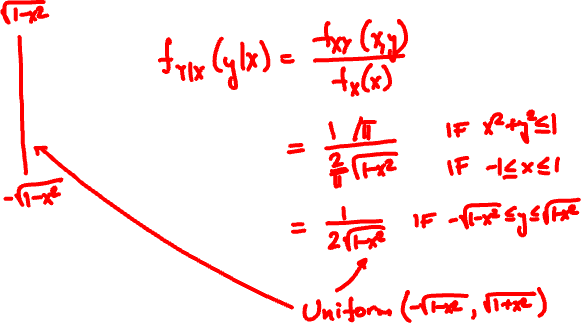 √1-x²
f_{Y|X}(y|x) = f_{XY}(x,y) / f_X(x)
= (1/π) / ((2/π)√1-x²) IF x²+y²≤1 IF -1≤x≤1
-√1-x²
= 1 / (2√1-x²) IF -√1-x² ≤ y ≤ √1-x²
Uniform (-√1-x², √1+x²)